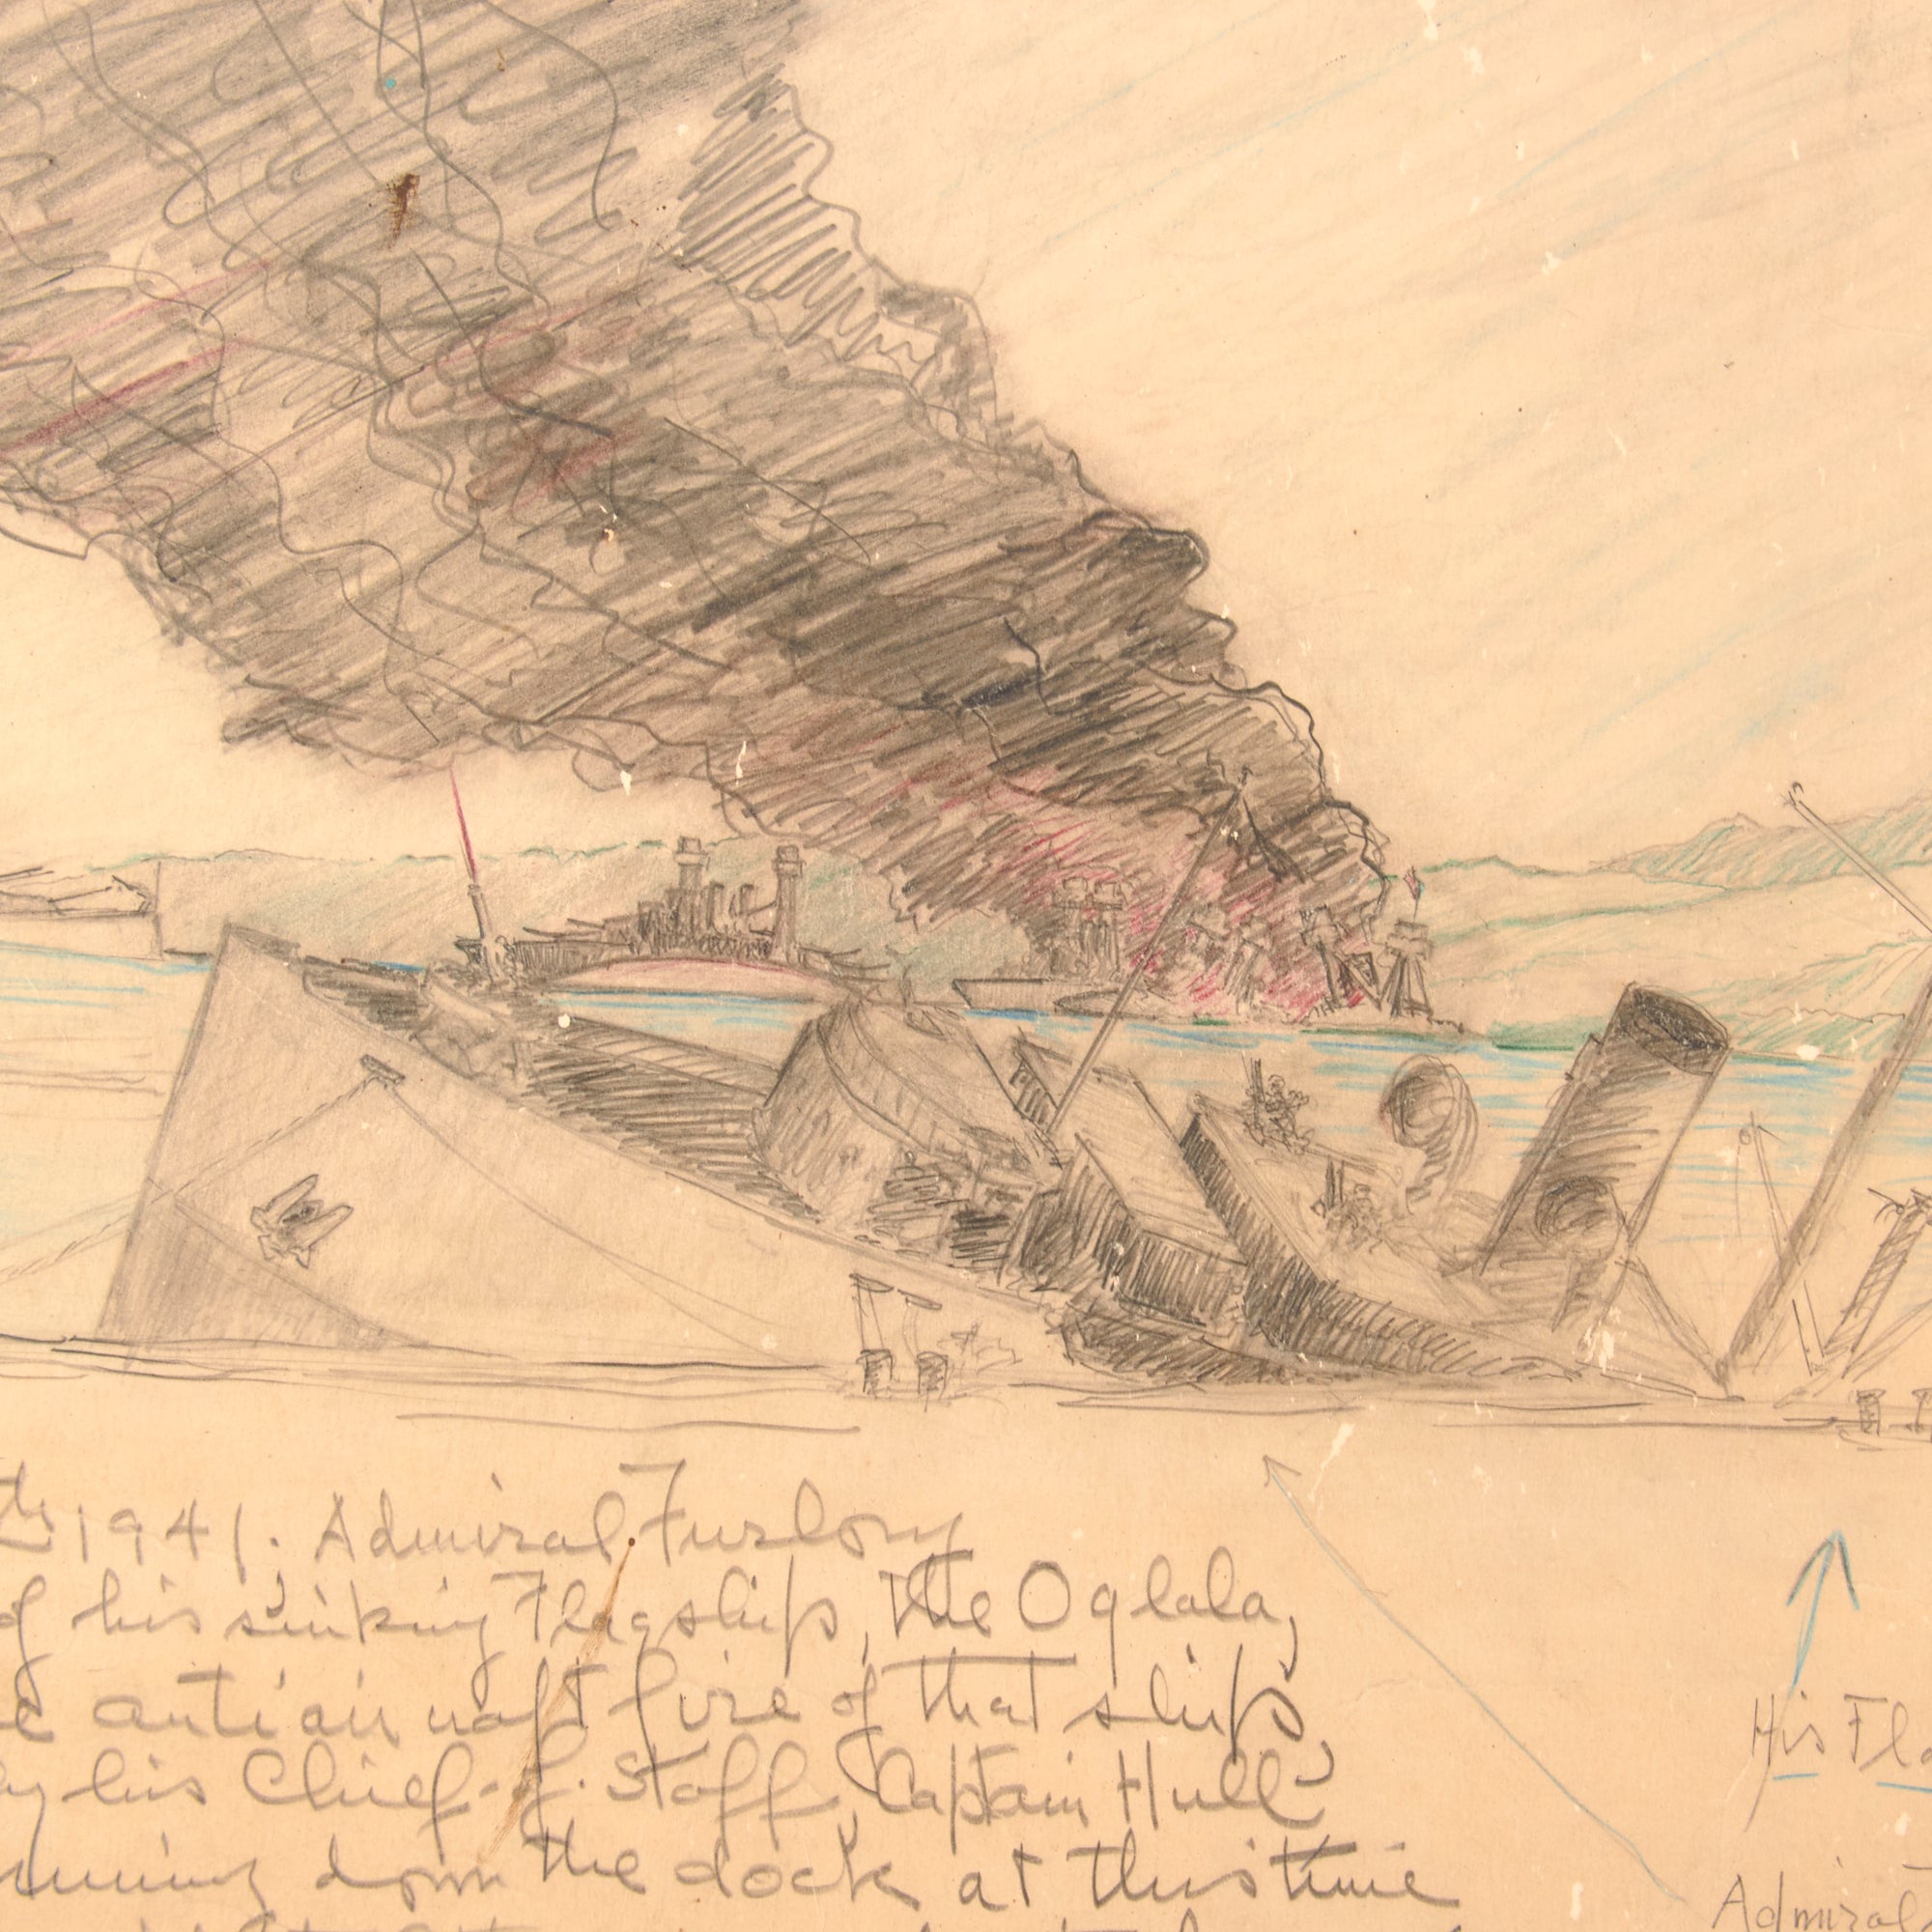 th 1941. Admiral Furlong
of his sinking Flagship, the Oglala,
antiaircraft fire of that ship,
by his Chief-of-Staff, Captain Hull
running down the dock at this time
His Fla
Admiral